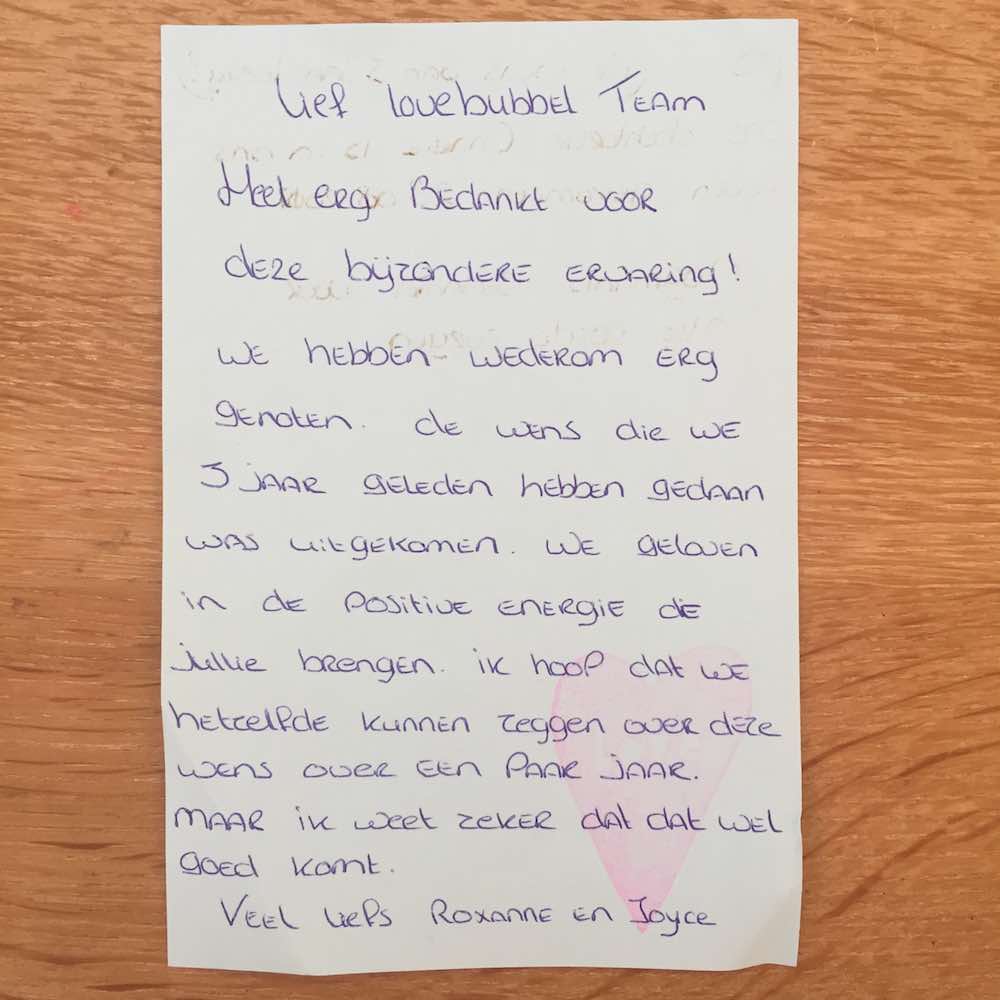 Lief Lovebubbel Team
Heel erg Bedankt voor
deze bijzondere ervaring!
We hebben wederom erg
genoten. de wens die we
3 jaar geleden hebben gedaan
was uitgekomen. We geloven
in de positive energie die
jullie brengen. ik hoop dat we
hetzelfde kunnen zeggen over deze
wens over een paar jaar.
Maar ik weet zeker dat dat wel
goed komt.
Veel liefs Roxanne en Joyce